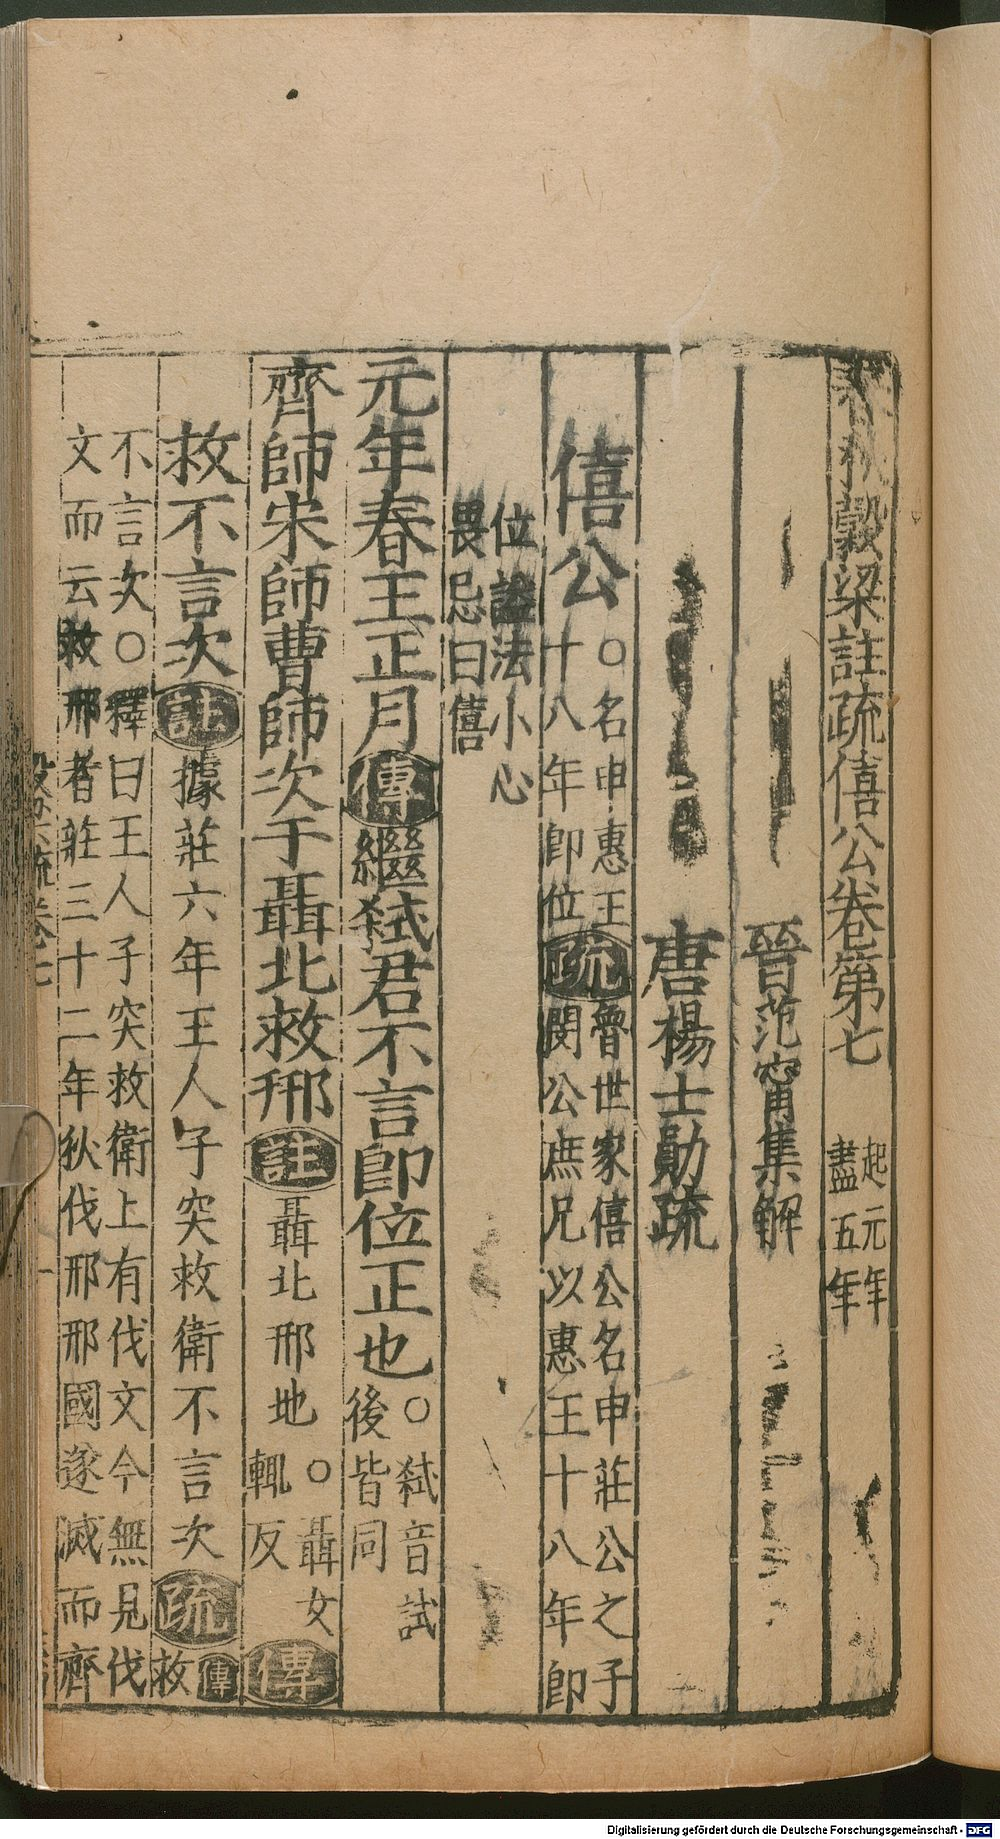 春秋穀梁註疏僖公卷第七 起元年
盡五年
晉范甯集解
唐楊士勛疏
僖公 ○名申惠王
十八年即位 疏 魯世家僖公名申莊公之子
閔公庶兄以惠王十八年即
位諡法小心
畏忌曰僖
元年春王正月 傳 繼弑君不言即位正也 ○弑音試
後皆同
齊師宋師曹師次于聶北救邢 註 聶北邢地 ○聶女
輒反 傳
救不言次 註 據莊六年王人子突救衛不言次 疏 傳
救
不言次○釋曰王人子突救衛上有伐文今無見伐
文而云救邢者莊三十二年狄伐邢邢國遂滅而齊
Digitalisierung gefördert durch die Deutsche Forschungsgemeinschaft - DFG